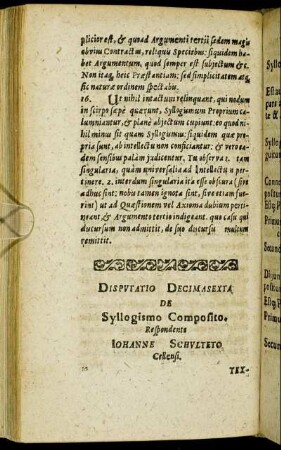 plicior est, & quoad Argumenti tertii sedem magis
obvius Contractus, reliquis Speciebus: siquidem ha-
bet Argumentum, quod semper est subjectum &c.
Non itaq; heic Præstantiam; sed simplicitatem atq;
sic naturæ ordinem spectabis.
16. Ut nihil intactum relinquant, qui nodum
in scirpo sæpè quærunt, Syllogismum Proprium ca-
lumniantur, & planè abjectum cupiunt: eo quod ni-
hil minus sit quàm Syllogismus: siquidem quæ pro-
pria sunt, ab intellectu non conficiantur: & vero ea-
dem sensibus palàm judicentur. Tu observa 1. tam
singularia, quàm universalia ad Intellectum per-
tinere. 2. interdum singularia ita esse obscura (sive
adhuc sint: nobis tamen ignota sint, sive etiam fue-
rint) ut ad Quæstionem vel Axioma dubium perti-
neant, & Argumento tertio indigeant. quo casu qui
discursum non admittit, de suo discursu multum
remittit.
DISPUTATIO DECIMASEXTA,
DE
Syllogismo Composito.
Respondente
IOHANNE SCHULTETO
Cellensi.
SYL-